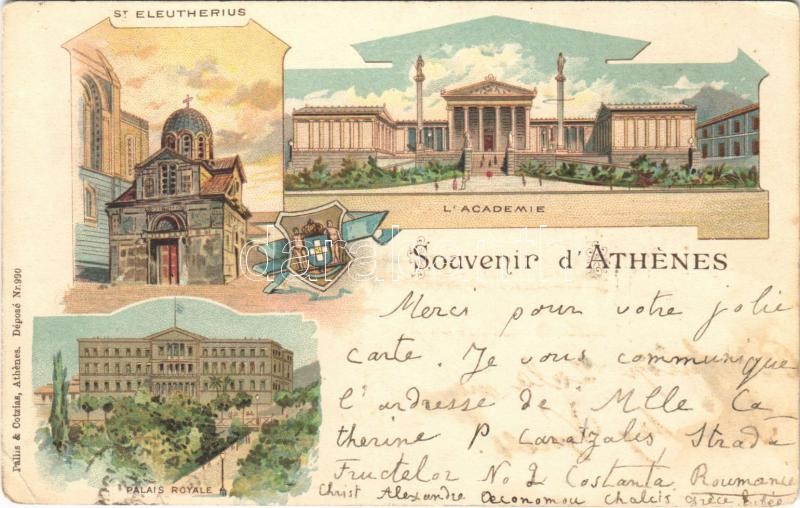 ST ELEUTHERIUS
L'ACADEMIE
Souvenir d'ATHÈNES
Pallis & Cotzias, Athènes. Déposé Nr. 990
PALAIS ROYALE
Merci pour votre jolie
carte. Je vous communique
l'ardresse de Mlle Ca-
therine P. Caratzalis Strada
Fructelor No 2 Costanta Roumanie
Christ Alexandre Œconomou Chalcis Grèce